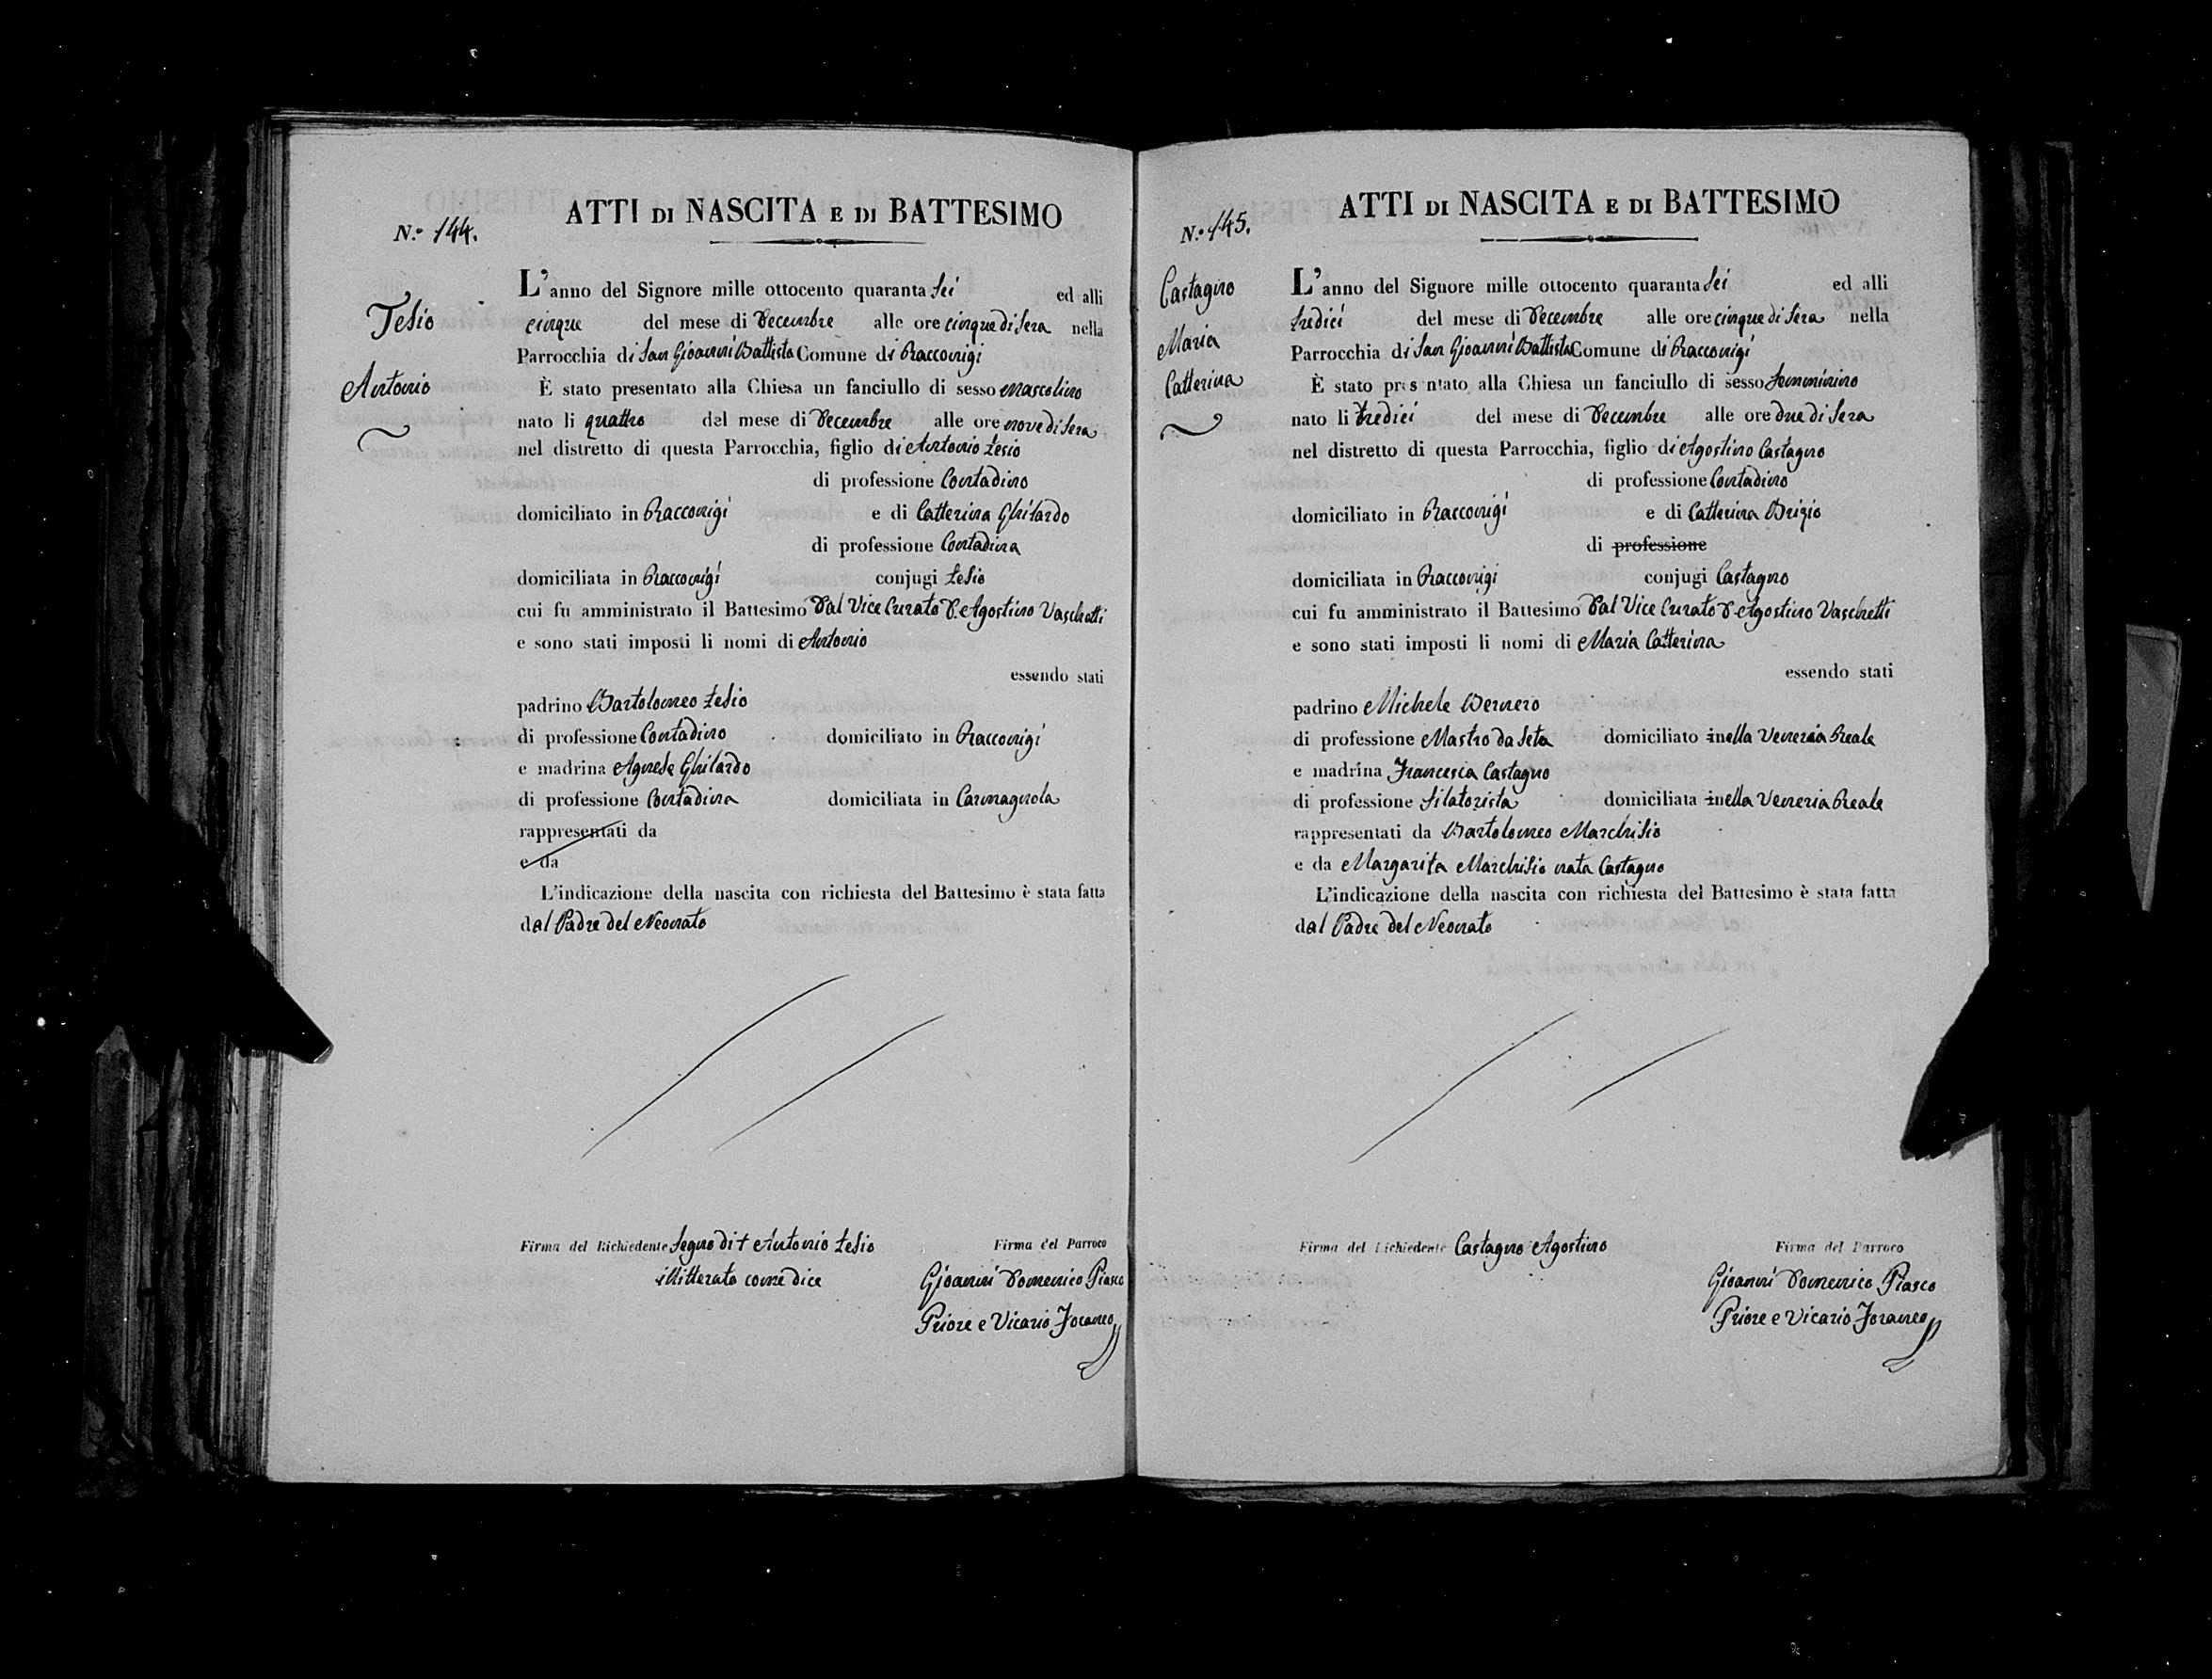 ATTI DI NASCITA E DI BATTESIMO
N.º 144.
Tesio
Antonio
L'anno del Signore mille ottocento quaranta sei ed alli
cinque del mese di Decembre alle ore cinque di sera nella
Parrocchia di San Gioanni Battista Comune di Racconigi
È stato presentato alla Chiesa un fanciullo di sesso mascolino
nato li quattro del mese di Decembre alle ore nove di sera
nel distretto di questa Parrocchia, figlio di Antonio Tesio
di professione Contadino
domiciliato in Racconigi e di Catterina Ghilardo
di professione Contadina
domiciliata in Racconigi conjugi Tesio
cui fu amministrato il Battesimo Dal Vice Curato D. Agostino Vaschetti
e sono stati imposti li nomi di Antonio
essendo stati
padrino Bartolomeo Tesio
di professione Contadino domiciliato in Racconigi
e madrina Agnese Ghilardo
di professione Contadina domiciliata in Carmagnola
rappresentati da
e da
L'indicazione della nascita con richiesta del Battesimo è stata fatta
dal Padre del Neonato
Firma del Richiedente Segno di + Antonio Tesio
illitterato come dice
Firma del Parroco
Gioanni Domenico Piasco
Priore e Vicario Foraneo
ATTI DI NASCITA E DI BATTESIMO
N.º 145.
Castagno
Maria
Catterina
L'anno del Signore mille ottocento quaranta sei ed alli
tredici del mese di Decembre alle ore cinque di sera nella
Parrocchia di San Gioanni Battista Comune di Racconigi
È stato presentato alla Chiesa un fanciullo di sesso femminino
nato li tredici del mese di Decembre alle ore due di sera
nel distretto di questa Parrocchia, figlio di Agostino Castagno
di professione Contadino
domiciliato in Racconigi e di Catterina Brizio
di professione
domiciliata in Racconigi conjugi Castagno
cui fu amministrato il Battesimo Dal Vice Curato D. Agostino Vaschetti
e sono stati imposti li nomi di Maria Catterina
essendo stati
padrino Michele Bernero
di professione Mastro da seta domiciliato inella Veneria Reale
e madrina Francesca Castagno
di professione filatorista domiciliata inella Veneria Reale
rappresentati da Bartolomeo Marchisio
e da Margarita Marchisio nata Castagno
L'indicazione della nascita con richiesta del Battesimo è stata fatta
dal Padre del Neonato
Firma del Richiedente Castagno Agostino
Firma del Parroco
Gioanni Domenico Piasco
Priore e Vicario Foraneo